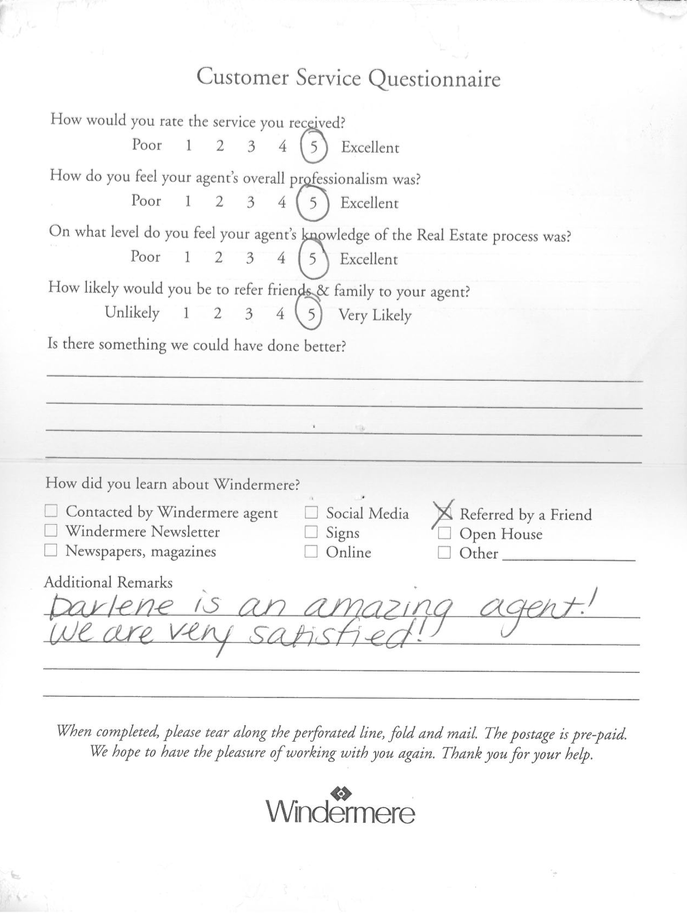 Customer Service Questionnaire
How would you rate the service you received?
Poor 1 2 3 4 5 Excellent
How do you feel your agent's overall professionalism was?
Poor 1 2 3 4 5 Excellent
On what level do you feel your agent's knowledge of the Real Estate process was?
Poor 1 2 3 4 5 Excellent
How likely would you be to refer friends & family to your agent?
Unlikely 1 2 3 4 5 Very Likely
Is there something we could have done better?
How did you learn about Windermere?
☐ Contacted by Windermere agent ☐ Social Media ☒ Referred by a Friend
☐ Windermere Newsletter ☐ Signs ☐ Open House
☐ Newspapers, magazines ☐ Online ☐ Other
Additional Remarks
Darlene is an amazing agent!
We are very satisfied!
When completed, please tear along the perforated line, fold and mail. The postage is pre-paid.
We hope to have the pleasure of working with you again. Thank you for your help.
Windermere